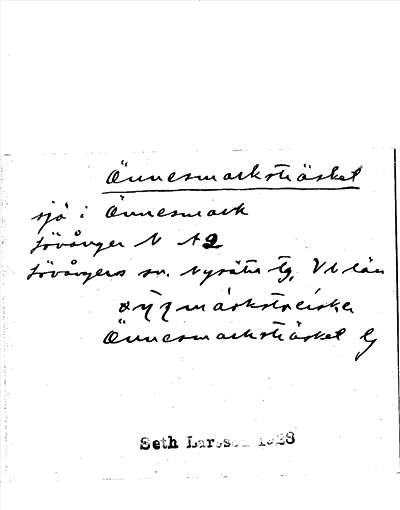 Önnesmarksträsket
sjö i Önnesmark
Lövånger N A2
Lövångers sn. Nysätra tg, Vb län
Önnesmarksträsket Lj
Seth Larsson 1928